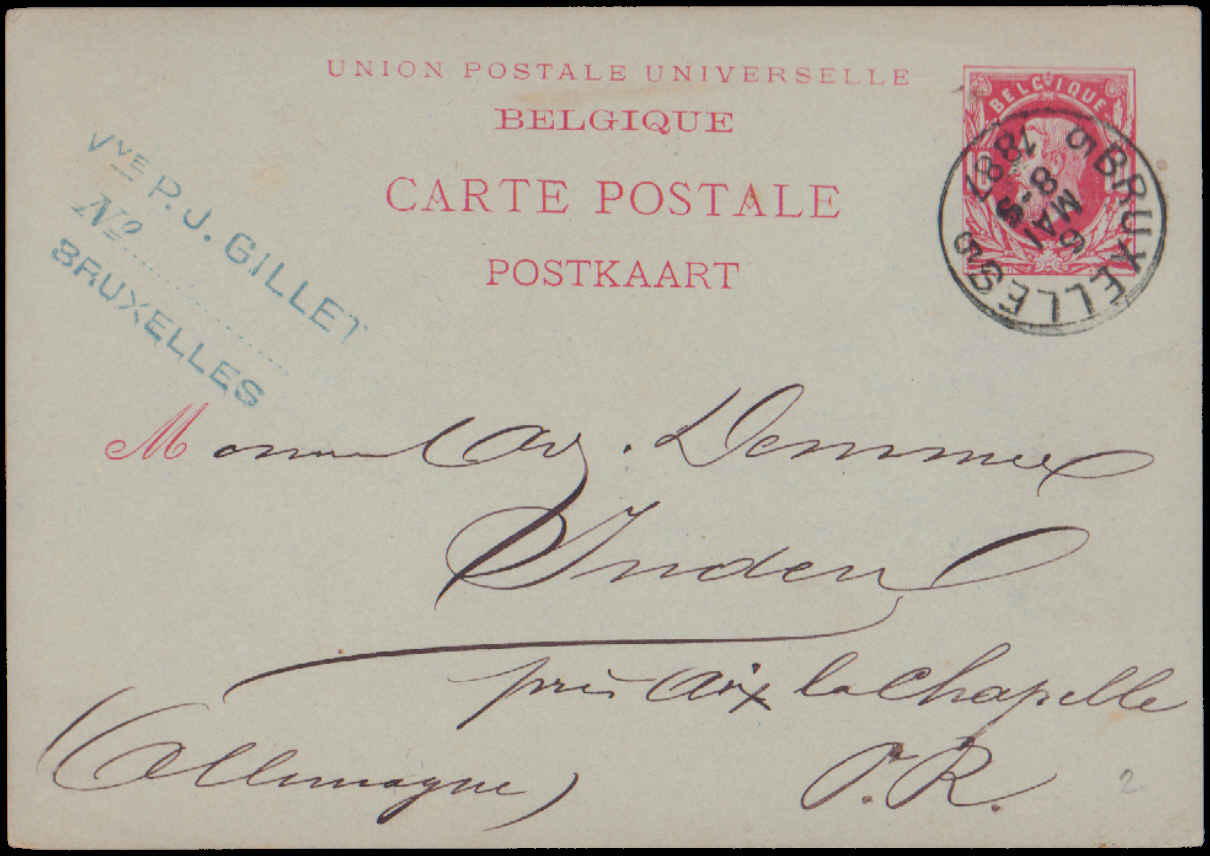 UNION POSTALE UNIVERSELLE
BELGIQUE
CARTE POSTALE
POSTKAART
BELGIQUE
BRUXELLES 5
6 MAI
8-S
1887
Vve P. J. GILLET
No
BRUXELLES
M
Inden
près Aix la Chapelle
(Allemagne)
P. R.
2